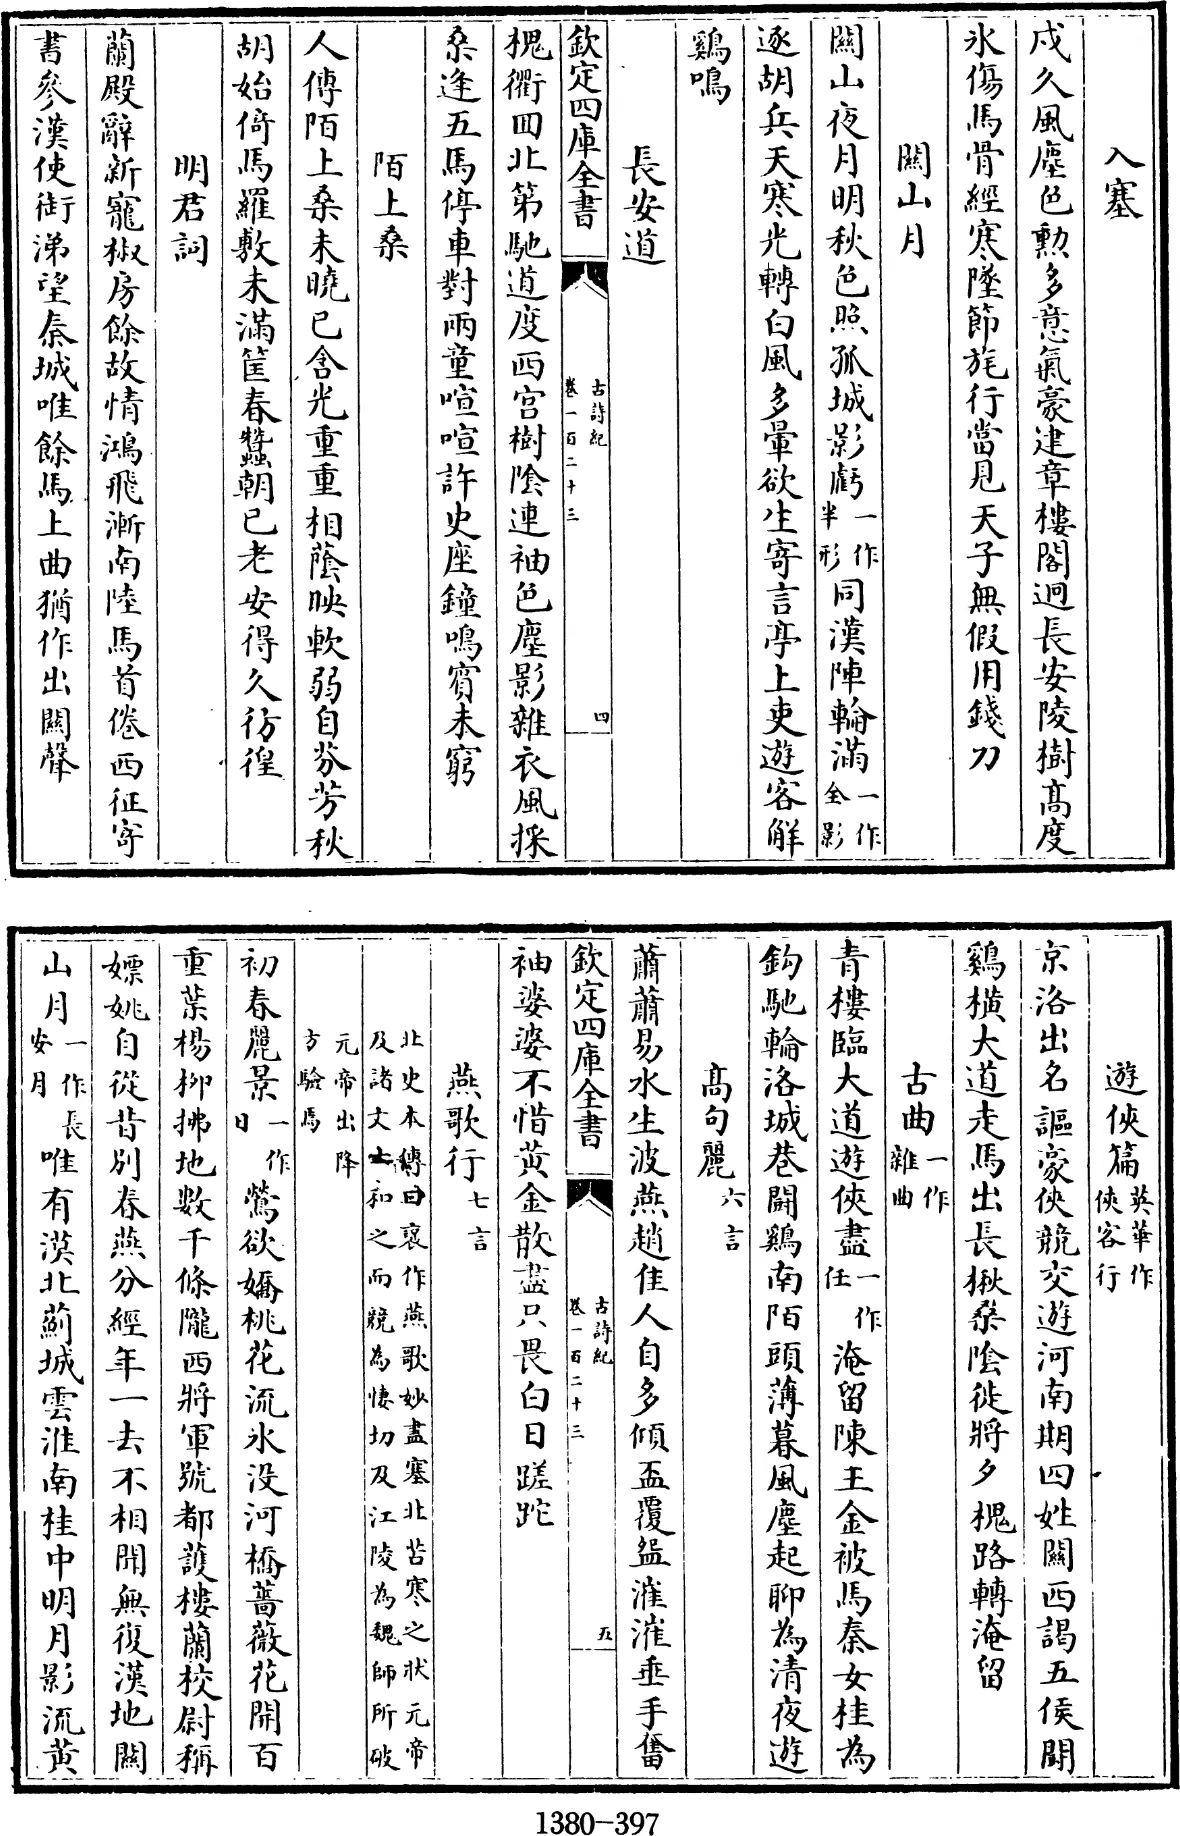 入塞
戍久風塵色勲多意氣豪建章樓閣迥長安陵樹髙度
氷傷馬骨經寒墜節旄行當見天子無假用錢刀
闗山月
闗山夜月明秋色照孤城影虧一作半形同漢陣輪滿一作全影
逐胡兵天寒光轉白風多暈欲生寄言亭上吏遊客解
鷄鳴
長安道
欽定四庫全書
古詩紀
卷一百二十三
四
槐衢回北第馳道度西宫樹隂連袖色塵影雜衣風採
桑逢五馬停車對兩童喧喧許史座鐘鳴賓未窮
陌上桑
人傳陌上桑未曉已含光重重相蔭映軟弱自芬芳秋
胡始倚馬羅敷未滿筐春蠶朝已老安得久彷徨
明君詞
蘭殿辭新寵椒房餘故情鴻飛漸南陸馬首倦西征寄
書參漢使銜涕望秦城唯餘馬上曲猶作出闗聲
遊俠篇英華作俠客行
京洛出名謳豪俠競交遊河南期四姓闗西謁五侯鬭
鷄横大道走馬出長楸桑隂徙將夕槐路轉淹留
古曲一作雜曲
青樓臨大道遊俠盡一作任淹留陳王金被馬秦女桂為
鈎馳輪洛城巷鬭鷄南陌頭薄暮風塵起聊為清夜遊
髙句麗六言
蕭蕭易水生波燕趙佳人自多傾盃覆盌漼漼垂手奮
欽定四庫全書
古詩紀
卷一百二十三
五
袖婆婆不惜黄金散盡只畏白日蹉跎
燕歌行七言
北史本傳曰襄作燕歌妙盡塞北苦寒之状元帝
及諸文士和之而競為悽切及江陵為魏師所破
元帝出降
方驗焉
初春麗景一作日鶯欲嬌桃花流氷没河橋薔薇花開百
重葉楊栁拂地數千條隴西將軍號都護樓蘭校尉稱
嫖姚自從昔别春燕分經年一去不相聞無復漢地闗
山月一作長安月唯有漠北薊城雲淮南桂中明月影流黄
1380-397